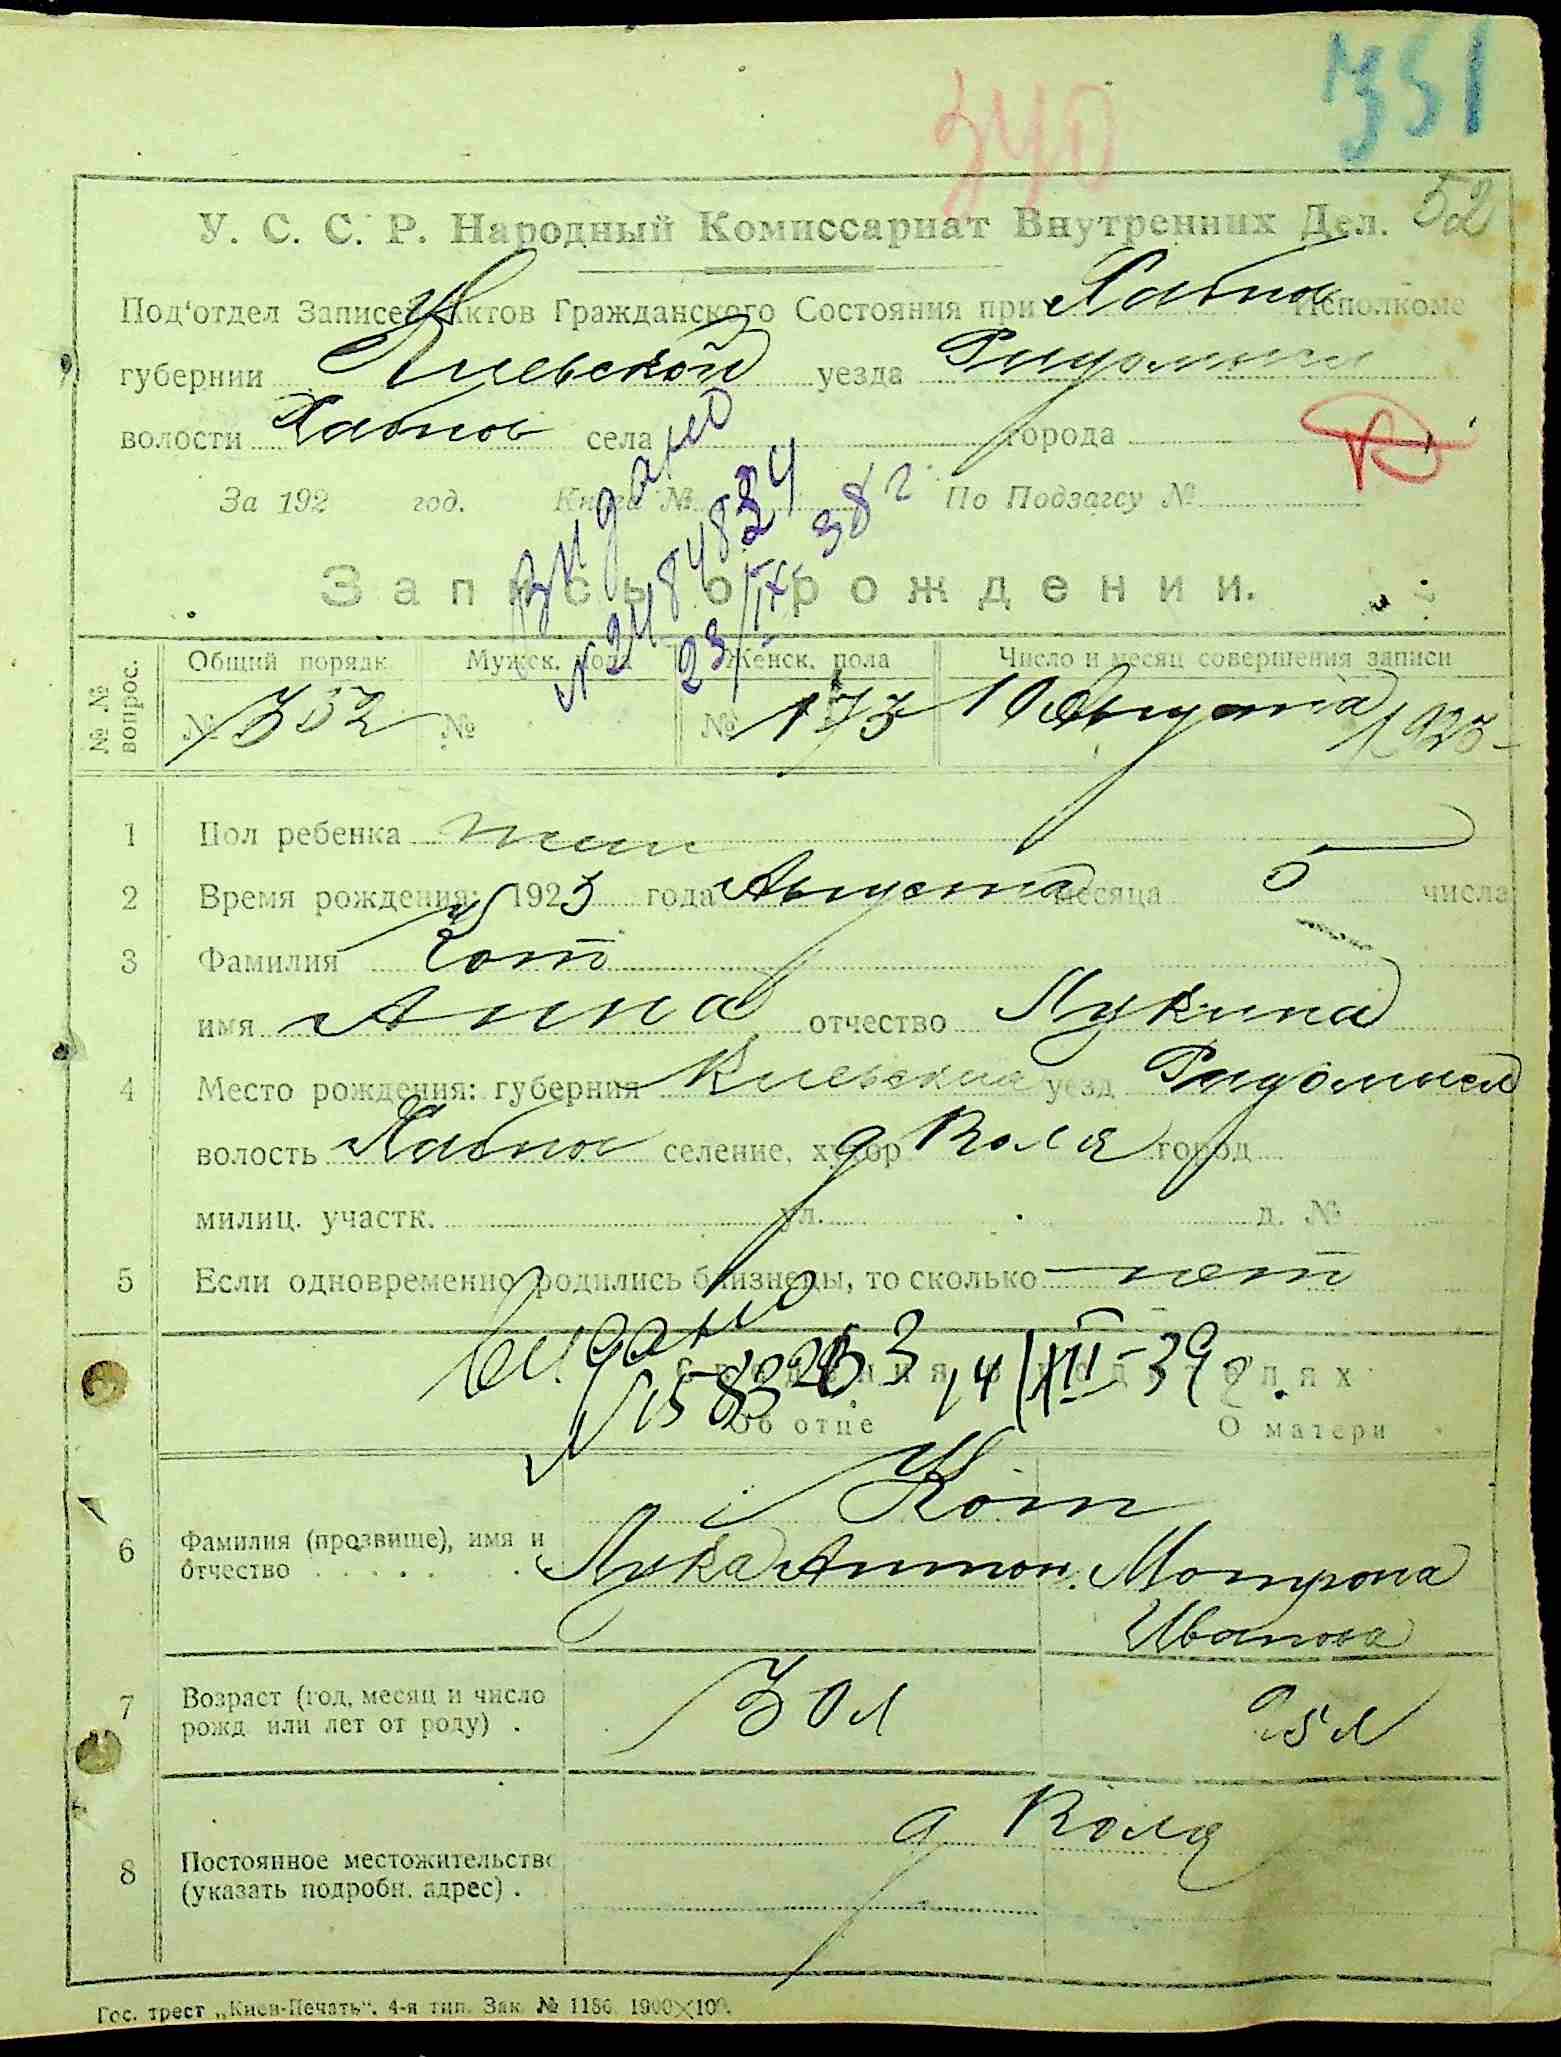 351
340
52
У. С. С. Р. Народный Комиссариат Внутренних Дел.
Под'отдел Записей Актов Гражданского Состояния при Хабнов Исполкоме
губернии Киевской уезда Радомысл
волости Хабнов села города
За 192 год. Книга № По Подзагсу №
Видано
№ 23/IX 38 г
Запись о рождении.
№№ вопрос. Общий порядк. Мужск. пола Женск. пола Число и месяц совершения записи
№ 352 № № 173 10 Августа 1923
1 Пол ребенка жен
2 Время рождения: 1923 года Августа месяца 5 числа
3 Фамилия Кот
имя Анна отчество Лукина
4 Место рождения: губерния Киевская уезд Радомысл
волость Хабнов селение, хутор д Воля город
милиц. участк. ул. д. №
5 Если одновременно родились близнецы, то сколько нет
Видано
№ 14/XII-39 г.
Сведения о родителях:
Об отце О матери
Кот
6 Фамилия (прозвище), имя и отчество Лука Антон. Мотрона
Иванова
7 Возраст (год, месяц и число рожд. или лет от роду) 30 л 25 л
д Воля
8 Постоянное местожительство (указать подробн. адрес)
Гос. трест „Киев-Печать“. 4-я тип. Зак. № 1186. 1900×100.